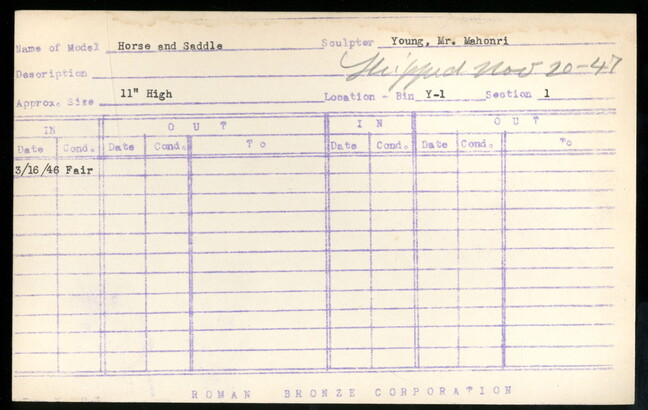 Name of Model Horse and Saddle Sculpter Young, Mr. Mahonri
Description Shipped Nov 20-47
Approx. Size 11" High Location - Bin Y-1 Section 1
IN OUT IN OUT
Date Cond. Date Cond. To Date Cond. Date Cond. To
3/16/46 Fair
ROMAN BRONZE CORPORATION